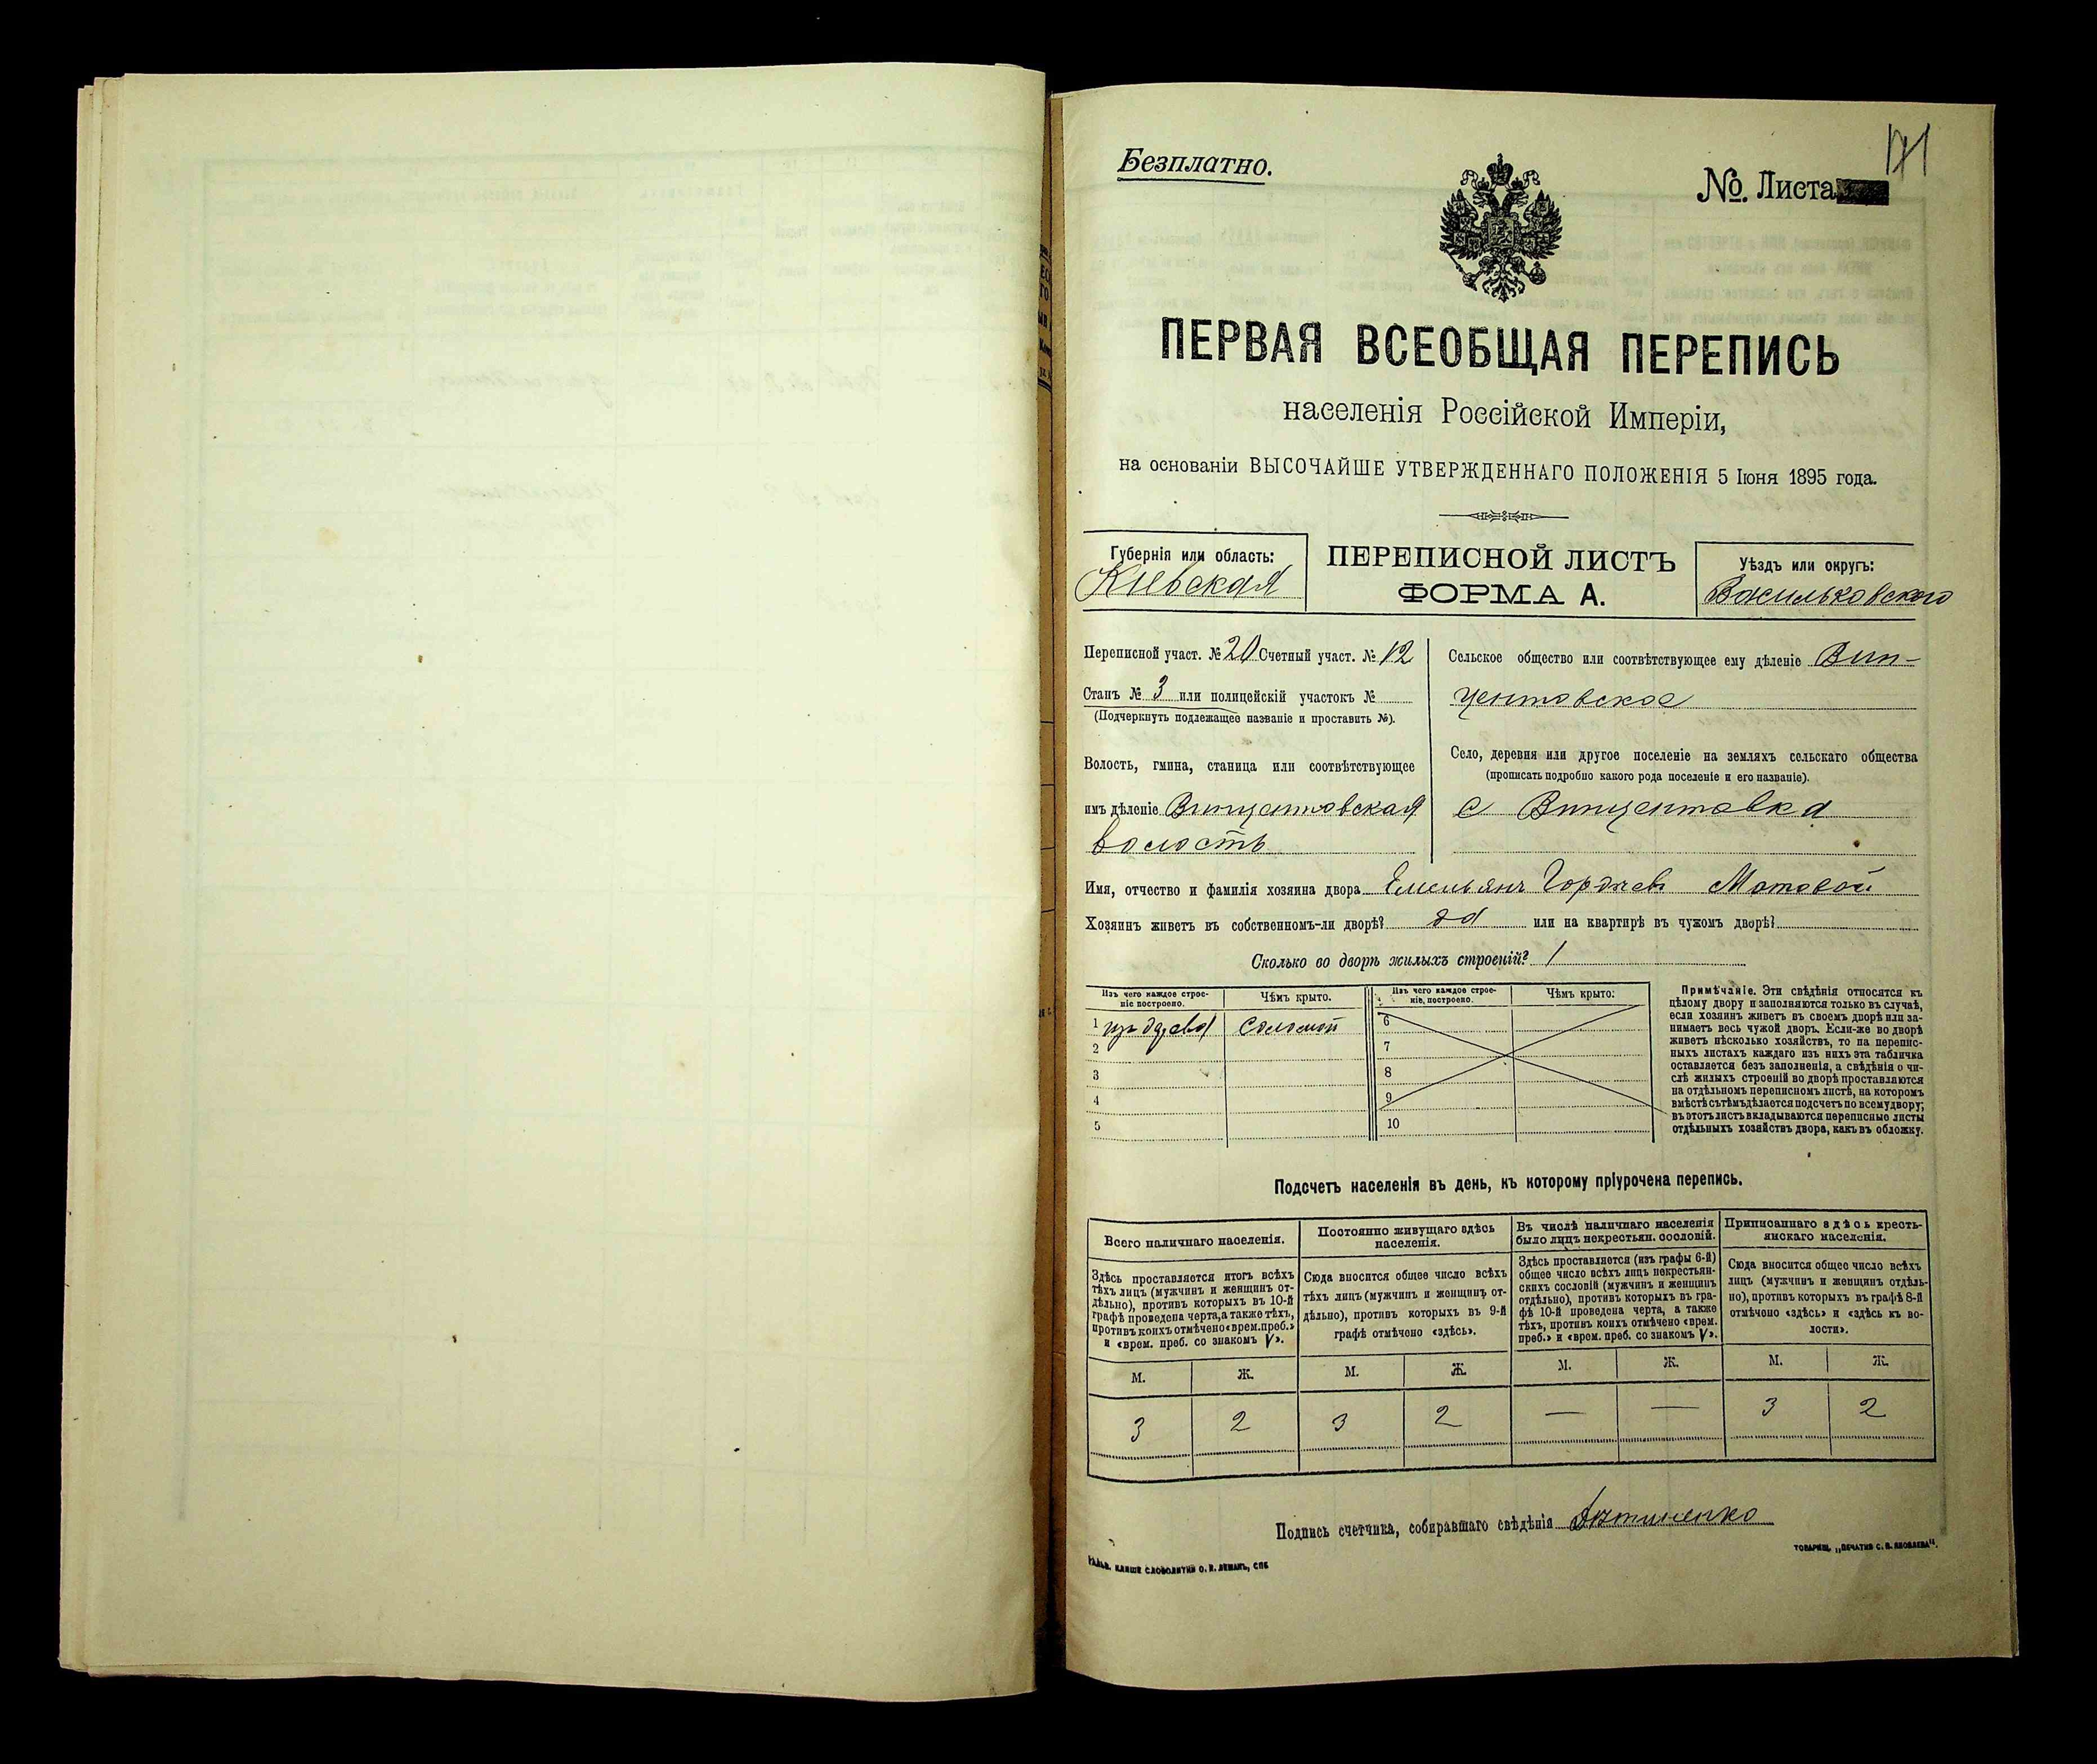 Безплатно.
№. Листа
171
ПЕРВАЯ ВСЕОБЩАЯ ПЕРЕПИСЬ
населенія Россійской Имперіи,
на основаніи ВЫСОЧАЙШЕ УТВЕРЖДЕННАГО ПОЛОЖЕНІЯ 5 Іюня 1895 года.
Губернія или область:
Кіевская
ПЕРЕПИСНОЙ ЛИСТЪ
ФОРМА А.
Уѣздъ или округъ:
Васильковского
Переписной участ. № 20 Счетный участ. № 12
Станъ № 3 или полицейскій участокъ №
(Подчеркнуть подлежащее названіе и проставить №).
Волость, гмина, станица или соотвѣтствующее
имъ дѣленіе Винцентовская
волость
Сельское общество или соотвѣтствующее ему дѣленіе Вин-
центовское
Село, деревня или другое поселеніе на земляхъ сельскаго общества
(прописать подробно какого рода поселеніе и его названіе).
с Винцентовка
Имя, отчество и фамилія хозяина двора Емельянъ Гордѣевъ Мотовой
Хозяинъ живетъ въ собственномъ-ли дворѣ? да или на квартирѣ въ чужомъ дворѣ?
Сколько во дворѣ жилыхъ строеній? 1
Изъ чего каждое строе-
ніе построено.
Чѣмъ крыто.
1 изъ дерева соломой
2
3
4
5
Изъ чего каждое строе-
ніе, построено.
Чѣмъ крыто:
6
7
8
9
10
Примѣчаніе. Эти свѣдѣнія относятся къ
цѣлому двору и заполняются только въ случаѣ,
если хозяинъ живетъ въ своемъ дворѣ или за-
нимаетъ весь чужой дворъ. Если-же во дворѣ
живетъ нѣсколько хозяйствъ, то на перепис-
ныхъ листахъ каждаго изъ нихъ эта табличка
оставляется безъ заполненія, а свѣдѣнія о чи-
слѣ жилыхъ строеній во дворѣ проставляются
на отдѣльномъ переписномъ листѣ, на которомъ
вмѣстѣ съ тѣмъ дѣлается подсчетъ по всему двору;
въ этотъ листъ вкладываются переписные листы
отдѣльныхъ хозяйствъ двора, какъ въ обложку.
Подсчетъ населенія въ день, къ которому пріурочена перепись.
Всего наличнаго населенія.
Здѣсь проставляется итогъ всѣхъ
тѣхъ лицъ (мужчинъ и женщинъ от-
дѣльно), противъ которыхъ въ 10-й
графѣ проведена черта, а также тѣхъ,
противъ коихъ отмѣчено «врем. преб.»
и «врем. преб. со знакомъ V».
М. Ж.
3 2
Постоянно живущаго здѣсь
населенія.
Сюда вносится общее число всѣхъ
тѣхъ лицъ (мужчинъ и женщинъ от-
дѣльно), противъ которыхъ въ 9-й
графѣ отмѣчено «здѣсь».
М. Ж.
3 2
Въ числѣ наличнаго населенія
было лицъ некрестьян. сословій.
Здѣсь проставляется (изъ графы 6-й)
общее число всѣхъ лицъ некрестьян-
скихъ сословій (мужчинъ и женщинъ
отдѣльно), противъ которыхъ въ гра-
фѣ 10-й проведена черта, а также
тѣхъ, противъ коихъ отмѣчено «врем.
преб.» и «врем. преб. со знакомъ V».
М. Ж.
— —
Приписаннаго здѣсь кресть-
янскаго населенія.
Сюда вносится общее число всѣхъ
лицъ (мужчинъ и женщинъ отдѣль-
но), противъ которыхъ въ графѣ 8-й
отмѣчено «здѣсь» и «здѣсь къ во-
лости».
М. Ж.
3 2
Подпись счетчика, собиравшаго свѣдѣнія
ГАЛЬВ. КЛИШЕ СЛОВОЛИТНИ О. И. ЛЕМАНЪ, СПБ
ТОВАРИЩ. „ПЕЧАТНЯ С. П. ЯКОВЛЕВА“.